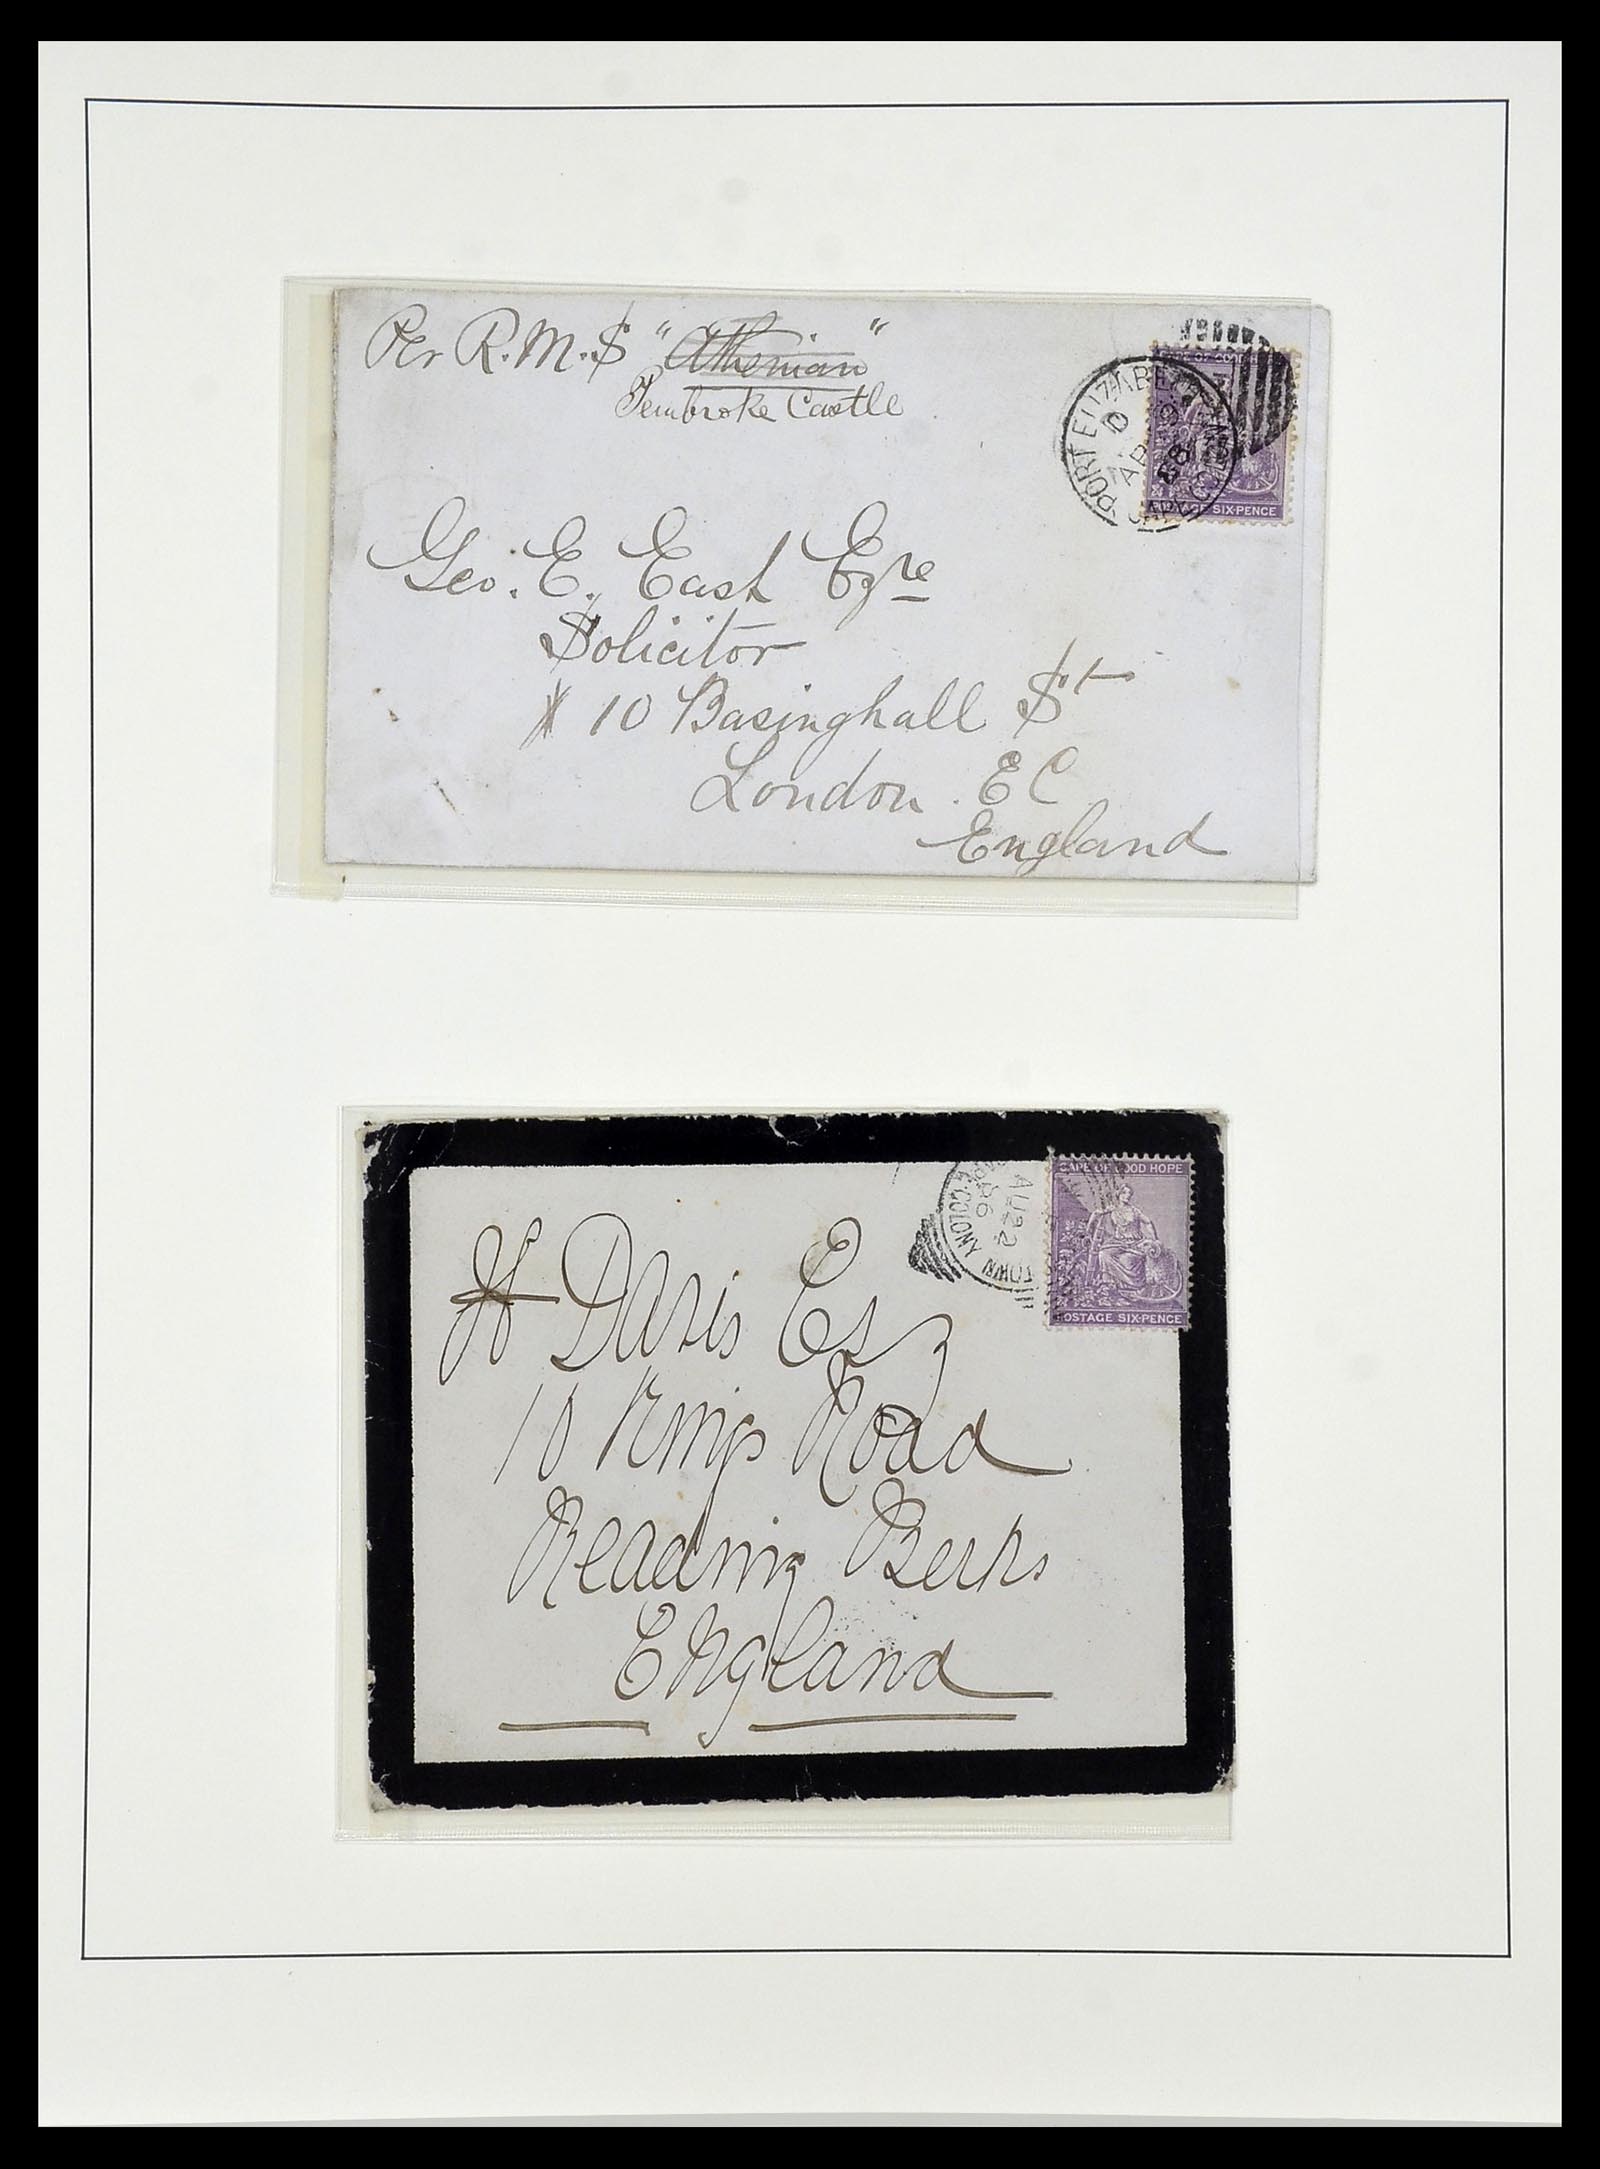 Per R.M.S "Athenian"
Pembroke Castle
PORT ELIZABETH
D
AP
88
POSTAGE SIX-PENCE
Geo. E. East Esqre
Solicitor
10 Basinghall St
London. E C
England
CAPE OF GOOD HOPE
POSTAGE SIX-PENCE
TOWN
COLONY
AU 22
86
H Davis Esq
10 Kings Road
Reading Berks
England